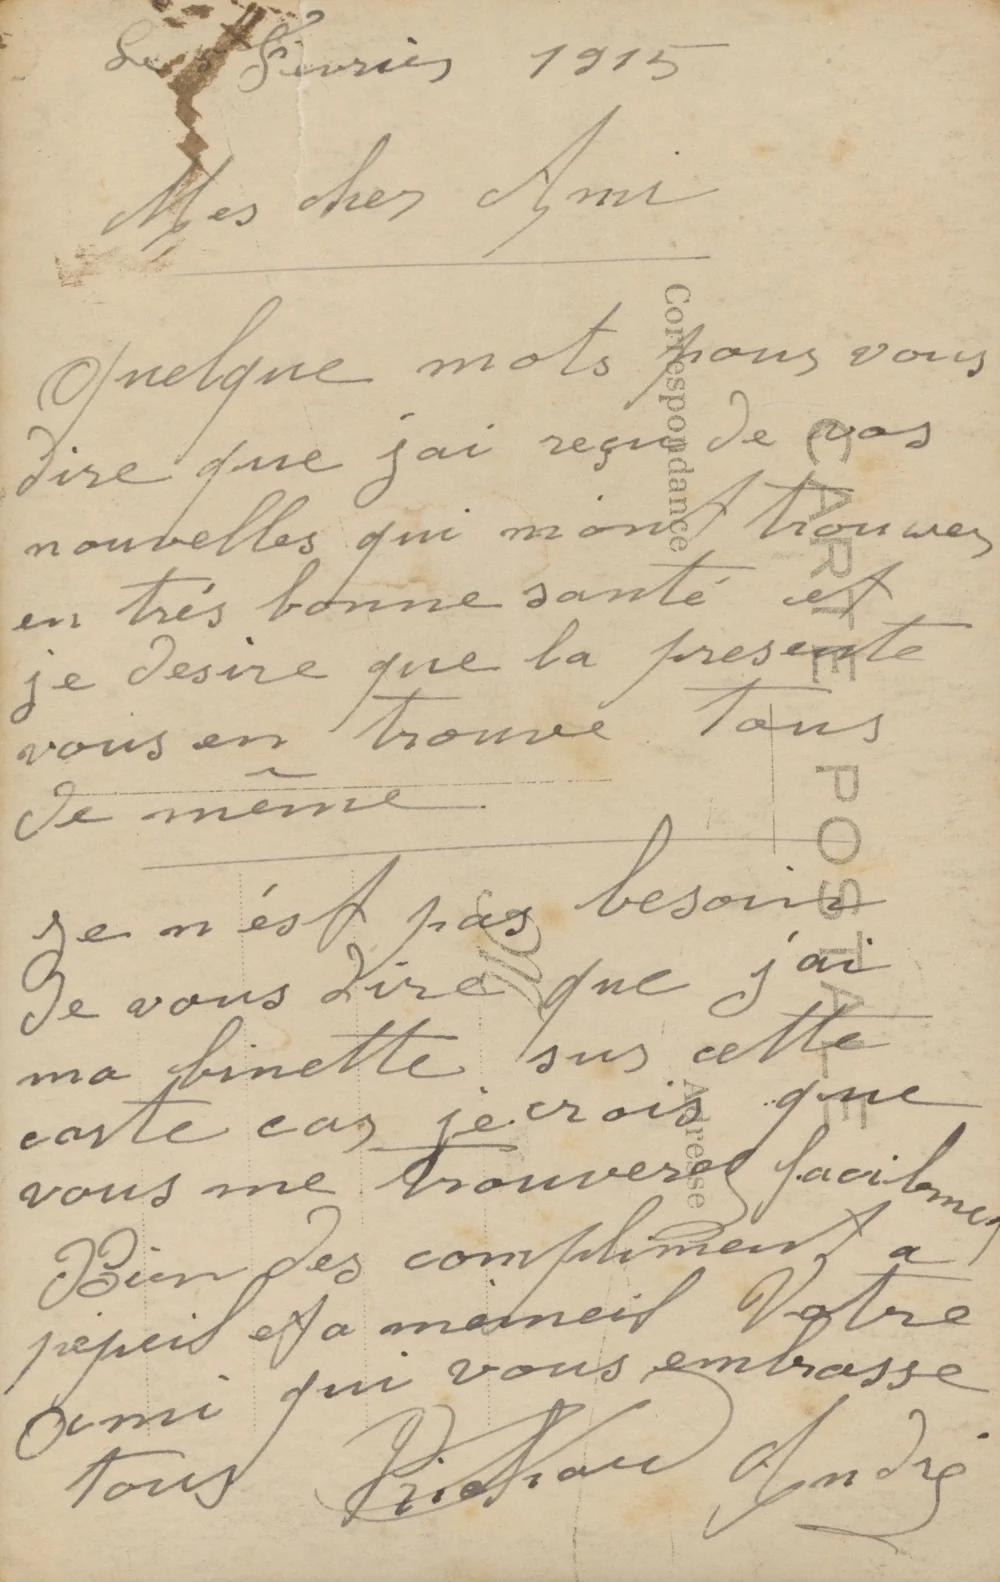 Le 5 Fevrier 1915
Mes cher Ami
Quelque mots pour vous
dire que j'ai reçu de vos
nouvelles qui m'ont trouver
en trés bonne santé et
je desire que la presente
vous en trouve tous
de même.
se n'ést pas besoin
de vous dire que j'ai
ma binette sur cette
carte car je crois que
vous me trouverez facilment
Bien des compliment a
pépeil et a mémeil Votre
ami qui vous embrasse
tous André
Correspondance
CARTE POSTALE
Adresse